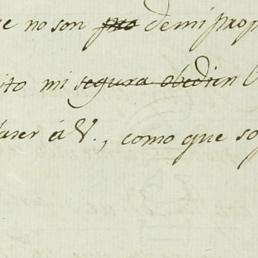 e no son pro de mi prop
to mi segura obedien
aser á V., como que so